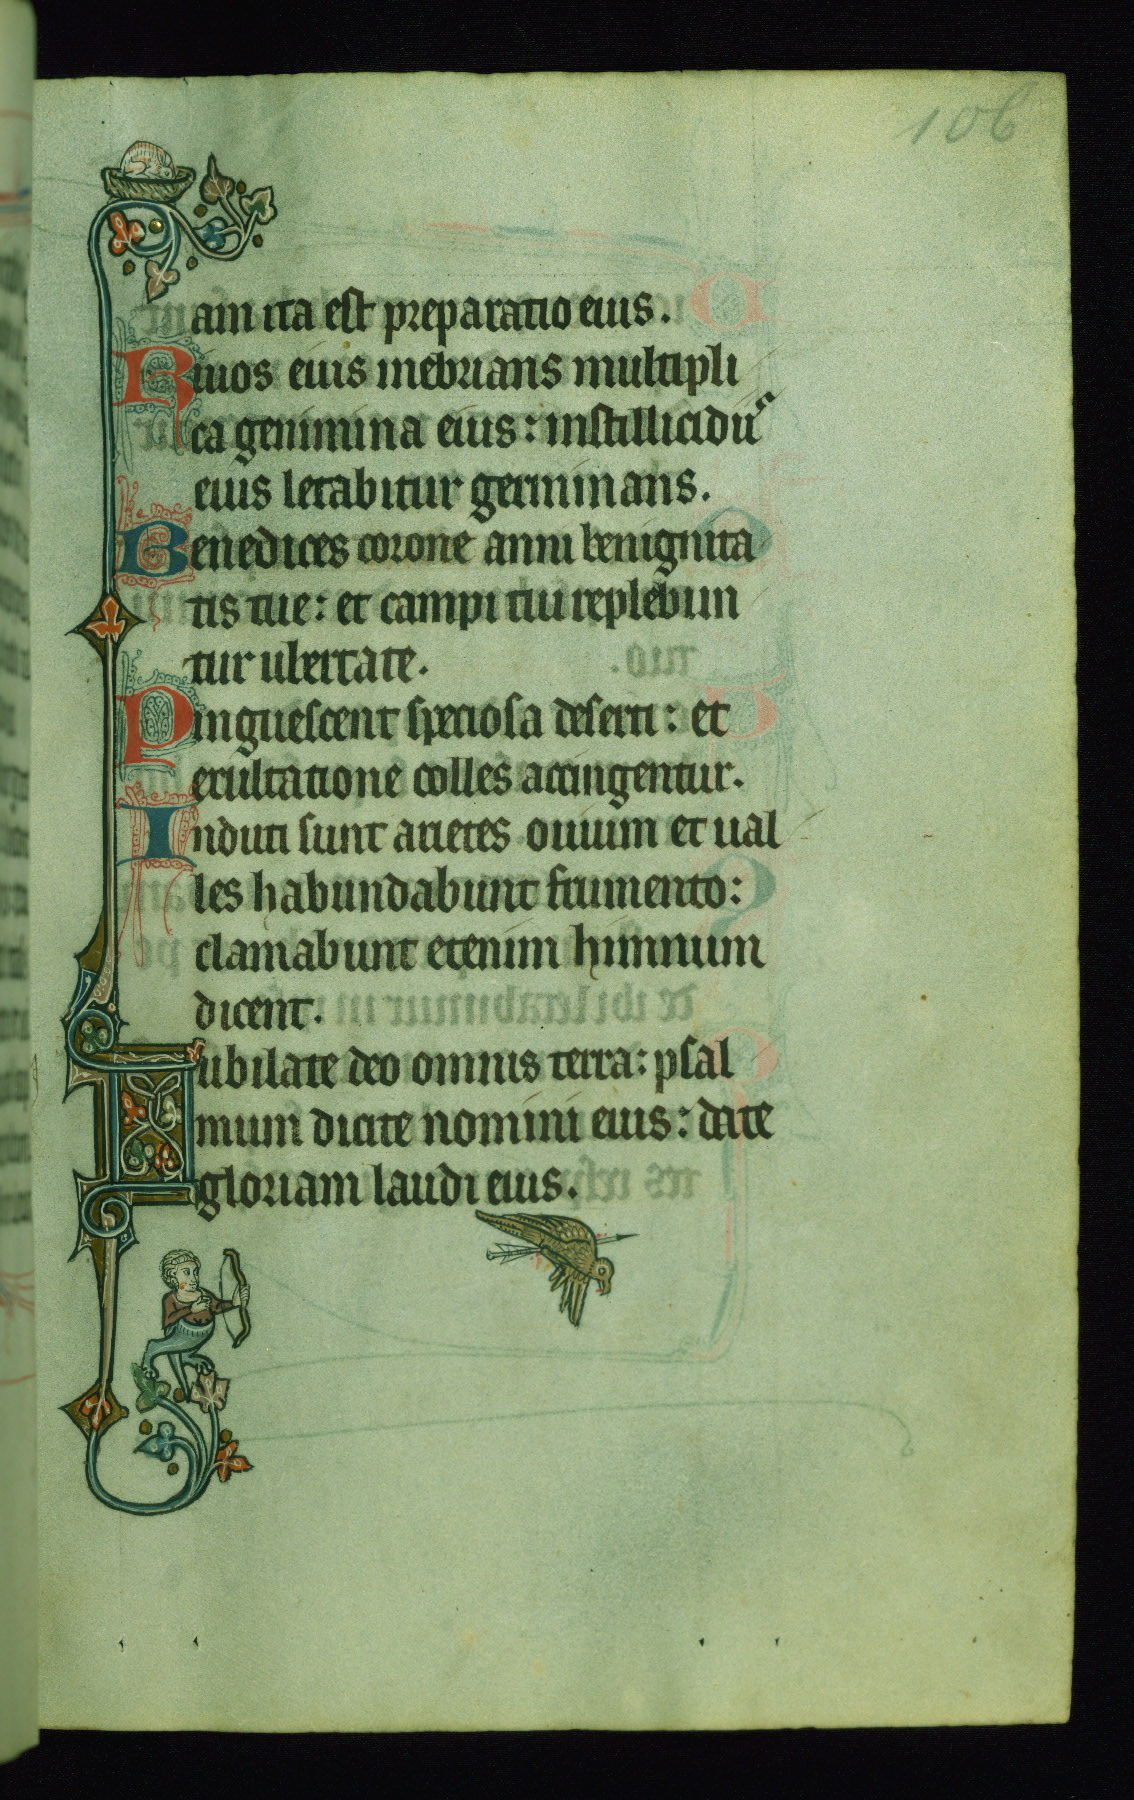 106
am ita est preparatio eius.
Riuos eius inebrians multipli
ca genimina eius: in stillicidiis
eius letabitur germinans.
Benedices corone anni benignita
tis tue: et campi tui replebun
tur ubertate.
Pinguescent speciosa deserti: et
exultatione colles accingentur.
Induti sunt arietes ouium et ual
les habundabunt frumento:
clamabunt etenim himnum
dicent.
Iubilate deo omnis terra: psal
mum dicite nomini eius: date
gloriam laudi eius.